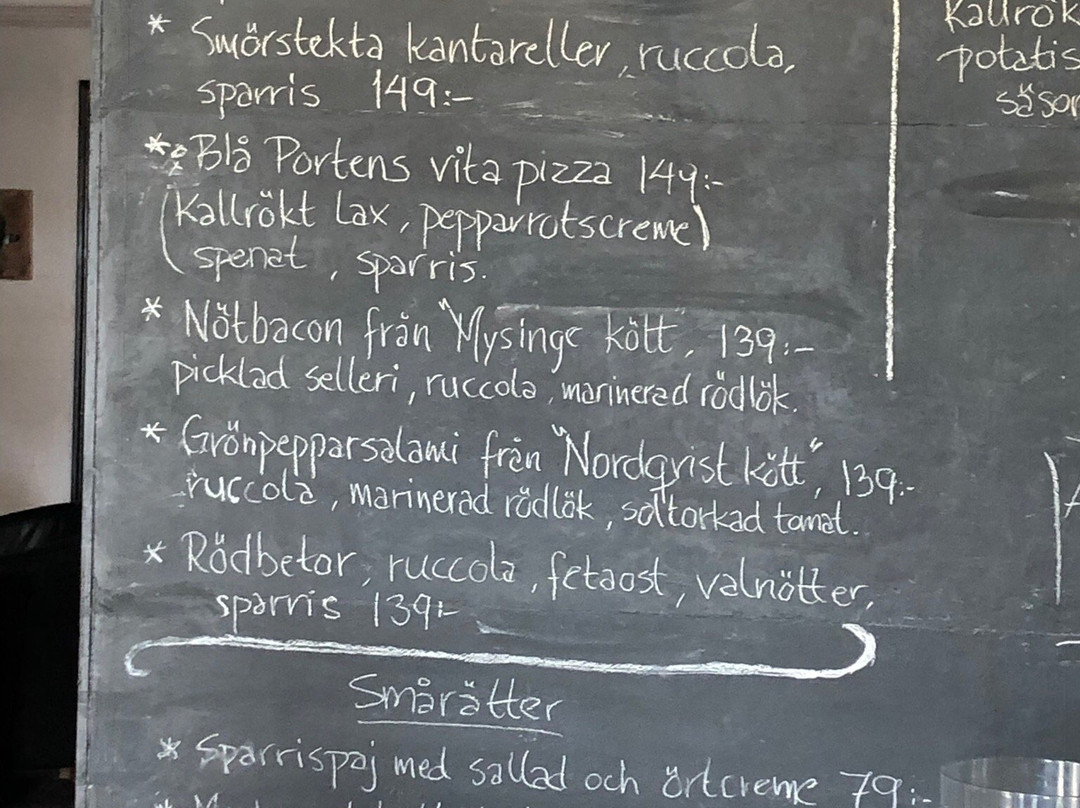 * Smörstekta kantareller, ruccola,
sparris 149:-
* Blå Portens vita pizza 149:-
(Kallrökt Lax, pepparrotscreme)
spenat, sparris.
* Nötbacon från "Mysinge kött", 139:-
picklad selleri, ruccola, marinerad rödlök.
* Grönpepparsalami från "Nordqvist kött", 139:-
ruccola, marinerad rödlök, soltorkad tomat.
* Rödbetor, ruccola, fetaost, valnötter,
sparris 139:-
Smårätter
* Sparrispaj med sallad och örtcreme 79:-
Kallrök
potatis
säson